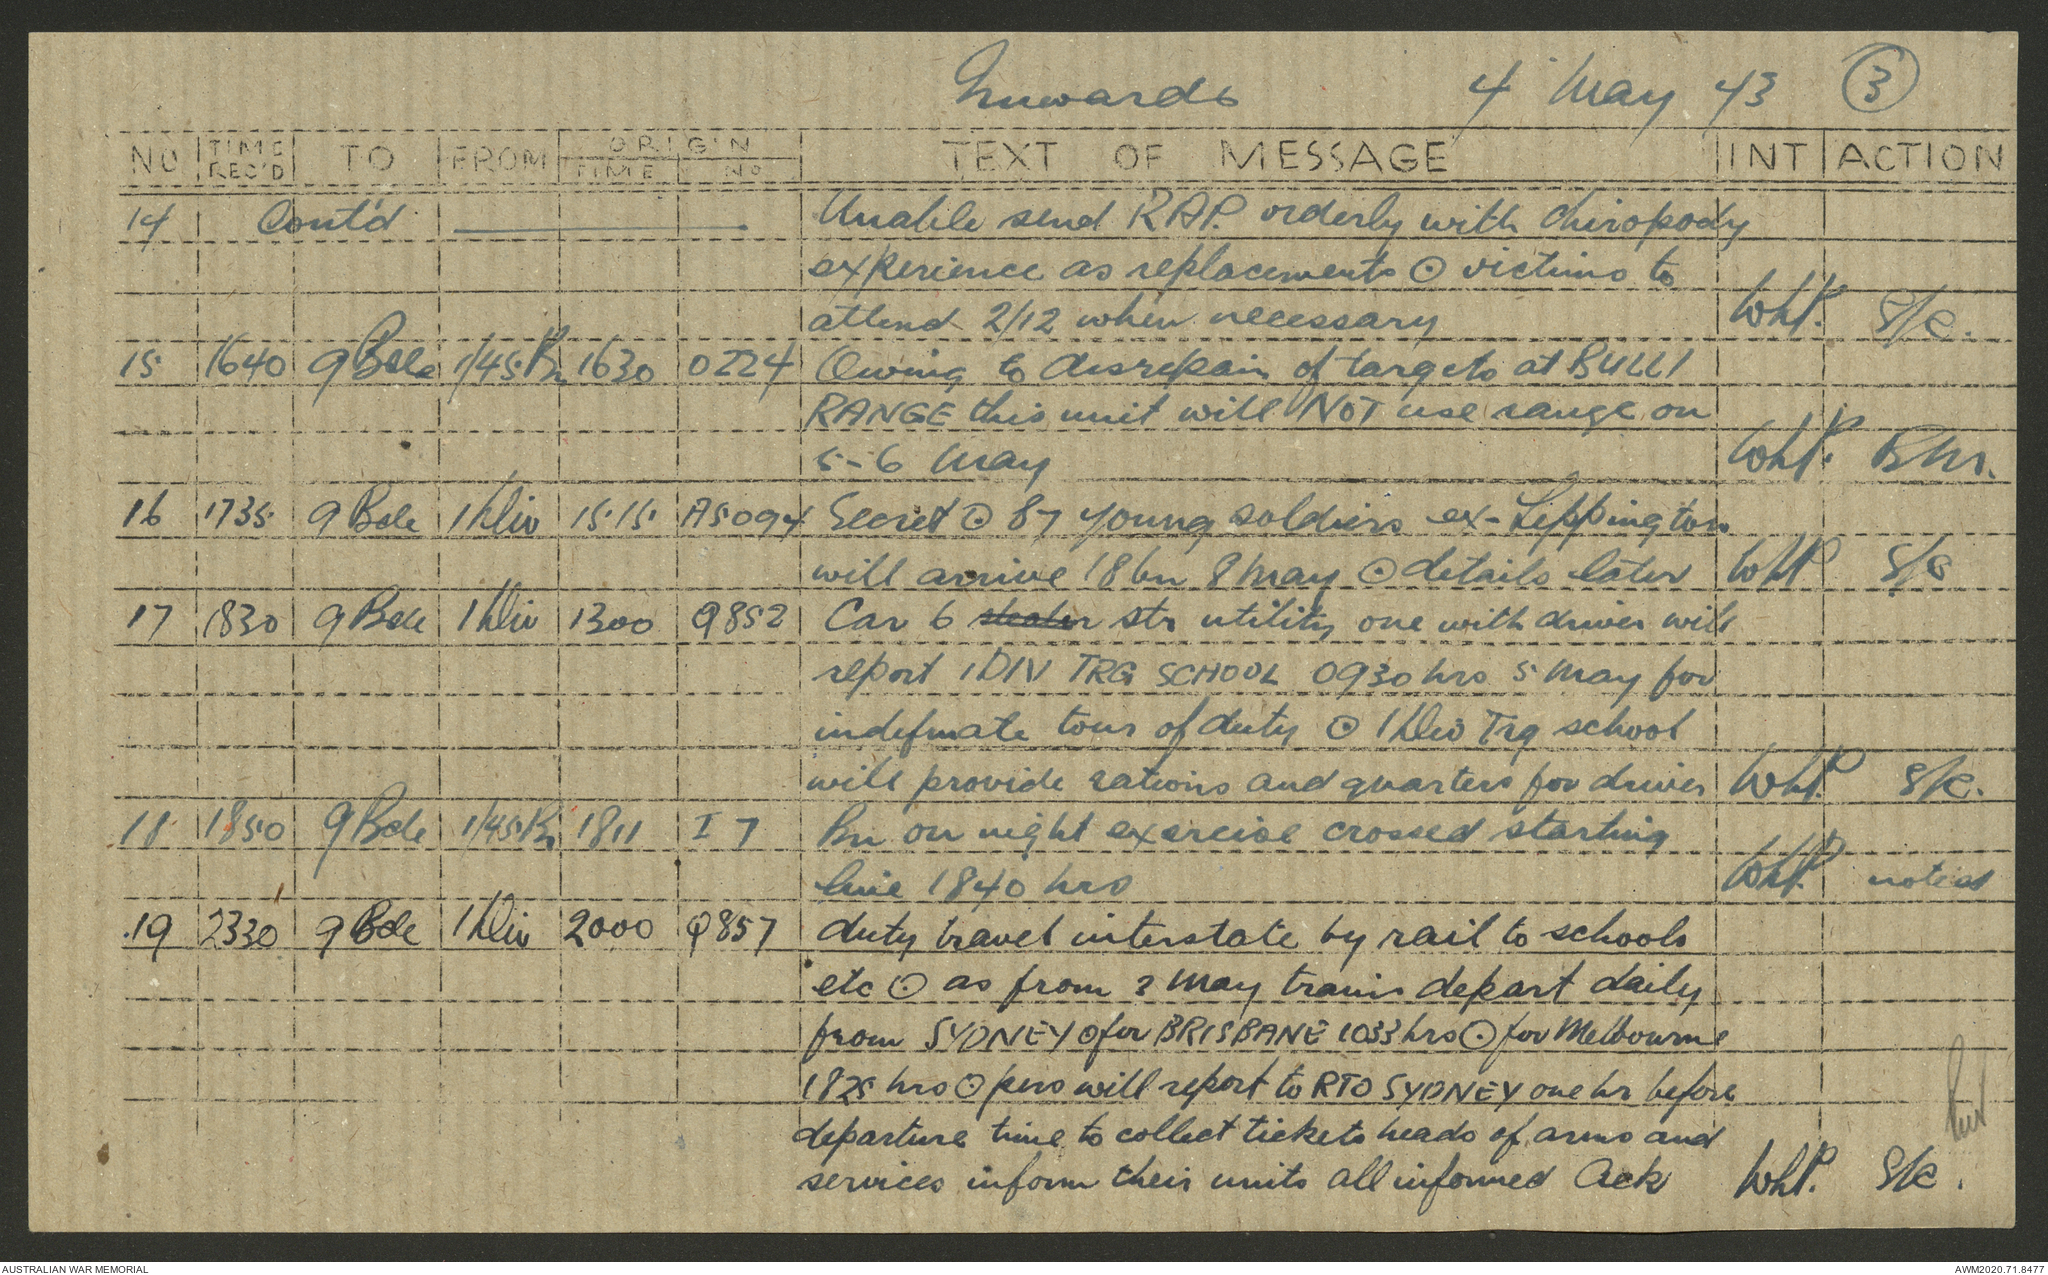 Inwards 4 May 43 3
NO TIME REC'D TO FROM ORIGIN TIME NO TEXT OF MESSAGE INT ACTION
14 Cont'd Unable send RAP. orderly with chiropody
experience as replacements ⊙ victims to
attend 2/12 when necessary WhP. S/c.
15 1640 9 Bde 1/45 Bn 1630 0224 Owing to disrepair of targets at BULLI
RANGE this unit will NOT use range on
5-6 May WhP. BM.
16 1735 9 Bde 1 Div 1515 A5094 Secret ⊙ 87 young soldiers ex-Leppington
will arrive 18 bn 8 May ⊙ details later WhP S/c
17 1830 9 Bde 1 Div 1300 Q852 Car 6 str utility one with driver will
report 1 DIV TRG SCHOOL 0930 hrs 5 May for
indefinate tour of duty ⊙ 1 Div Trg school
will provide rations and quarters for driver WhP. S/c.
18 1850 9 Bde 1/45 Bn 1811 I 7 Bn on night exercise crossed starting
line 1840 hrs WhP. noted
19 2330 9 Bde 1 Div 2000 Q857 duty travel interstate by rail to schools
etc ⊙ as from 3 May trains depart daily
from SYDNEY ⊙ for BRISBANE 1033 hrs ⊙ for Melbourne
1825 hrs ⊙ pers will report to RTO SYDNEY one hr before
departure time to collect tickets heads of arms and
services inform their units all informed Ack WhP. S/c.
AUSTRALIAN WAR MEMORIAL AWM2020.71.8477